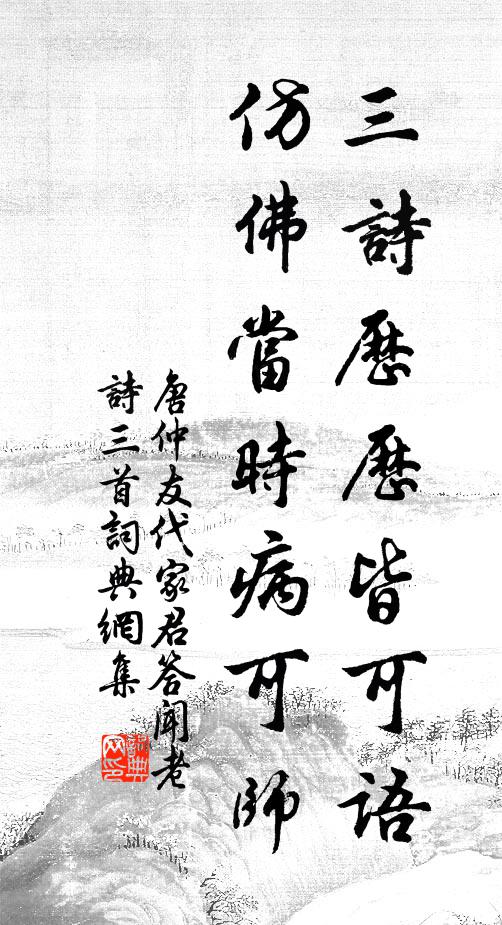 三詩歷歷皆可語
仿佛當時病可師
唐仲友代家君答聞老
詩三首詞典網集
詞典网印